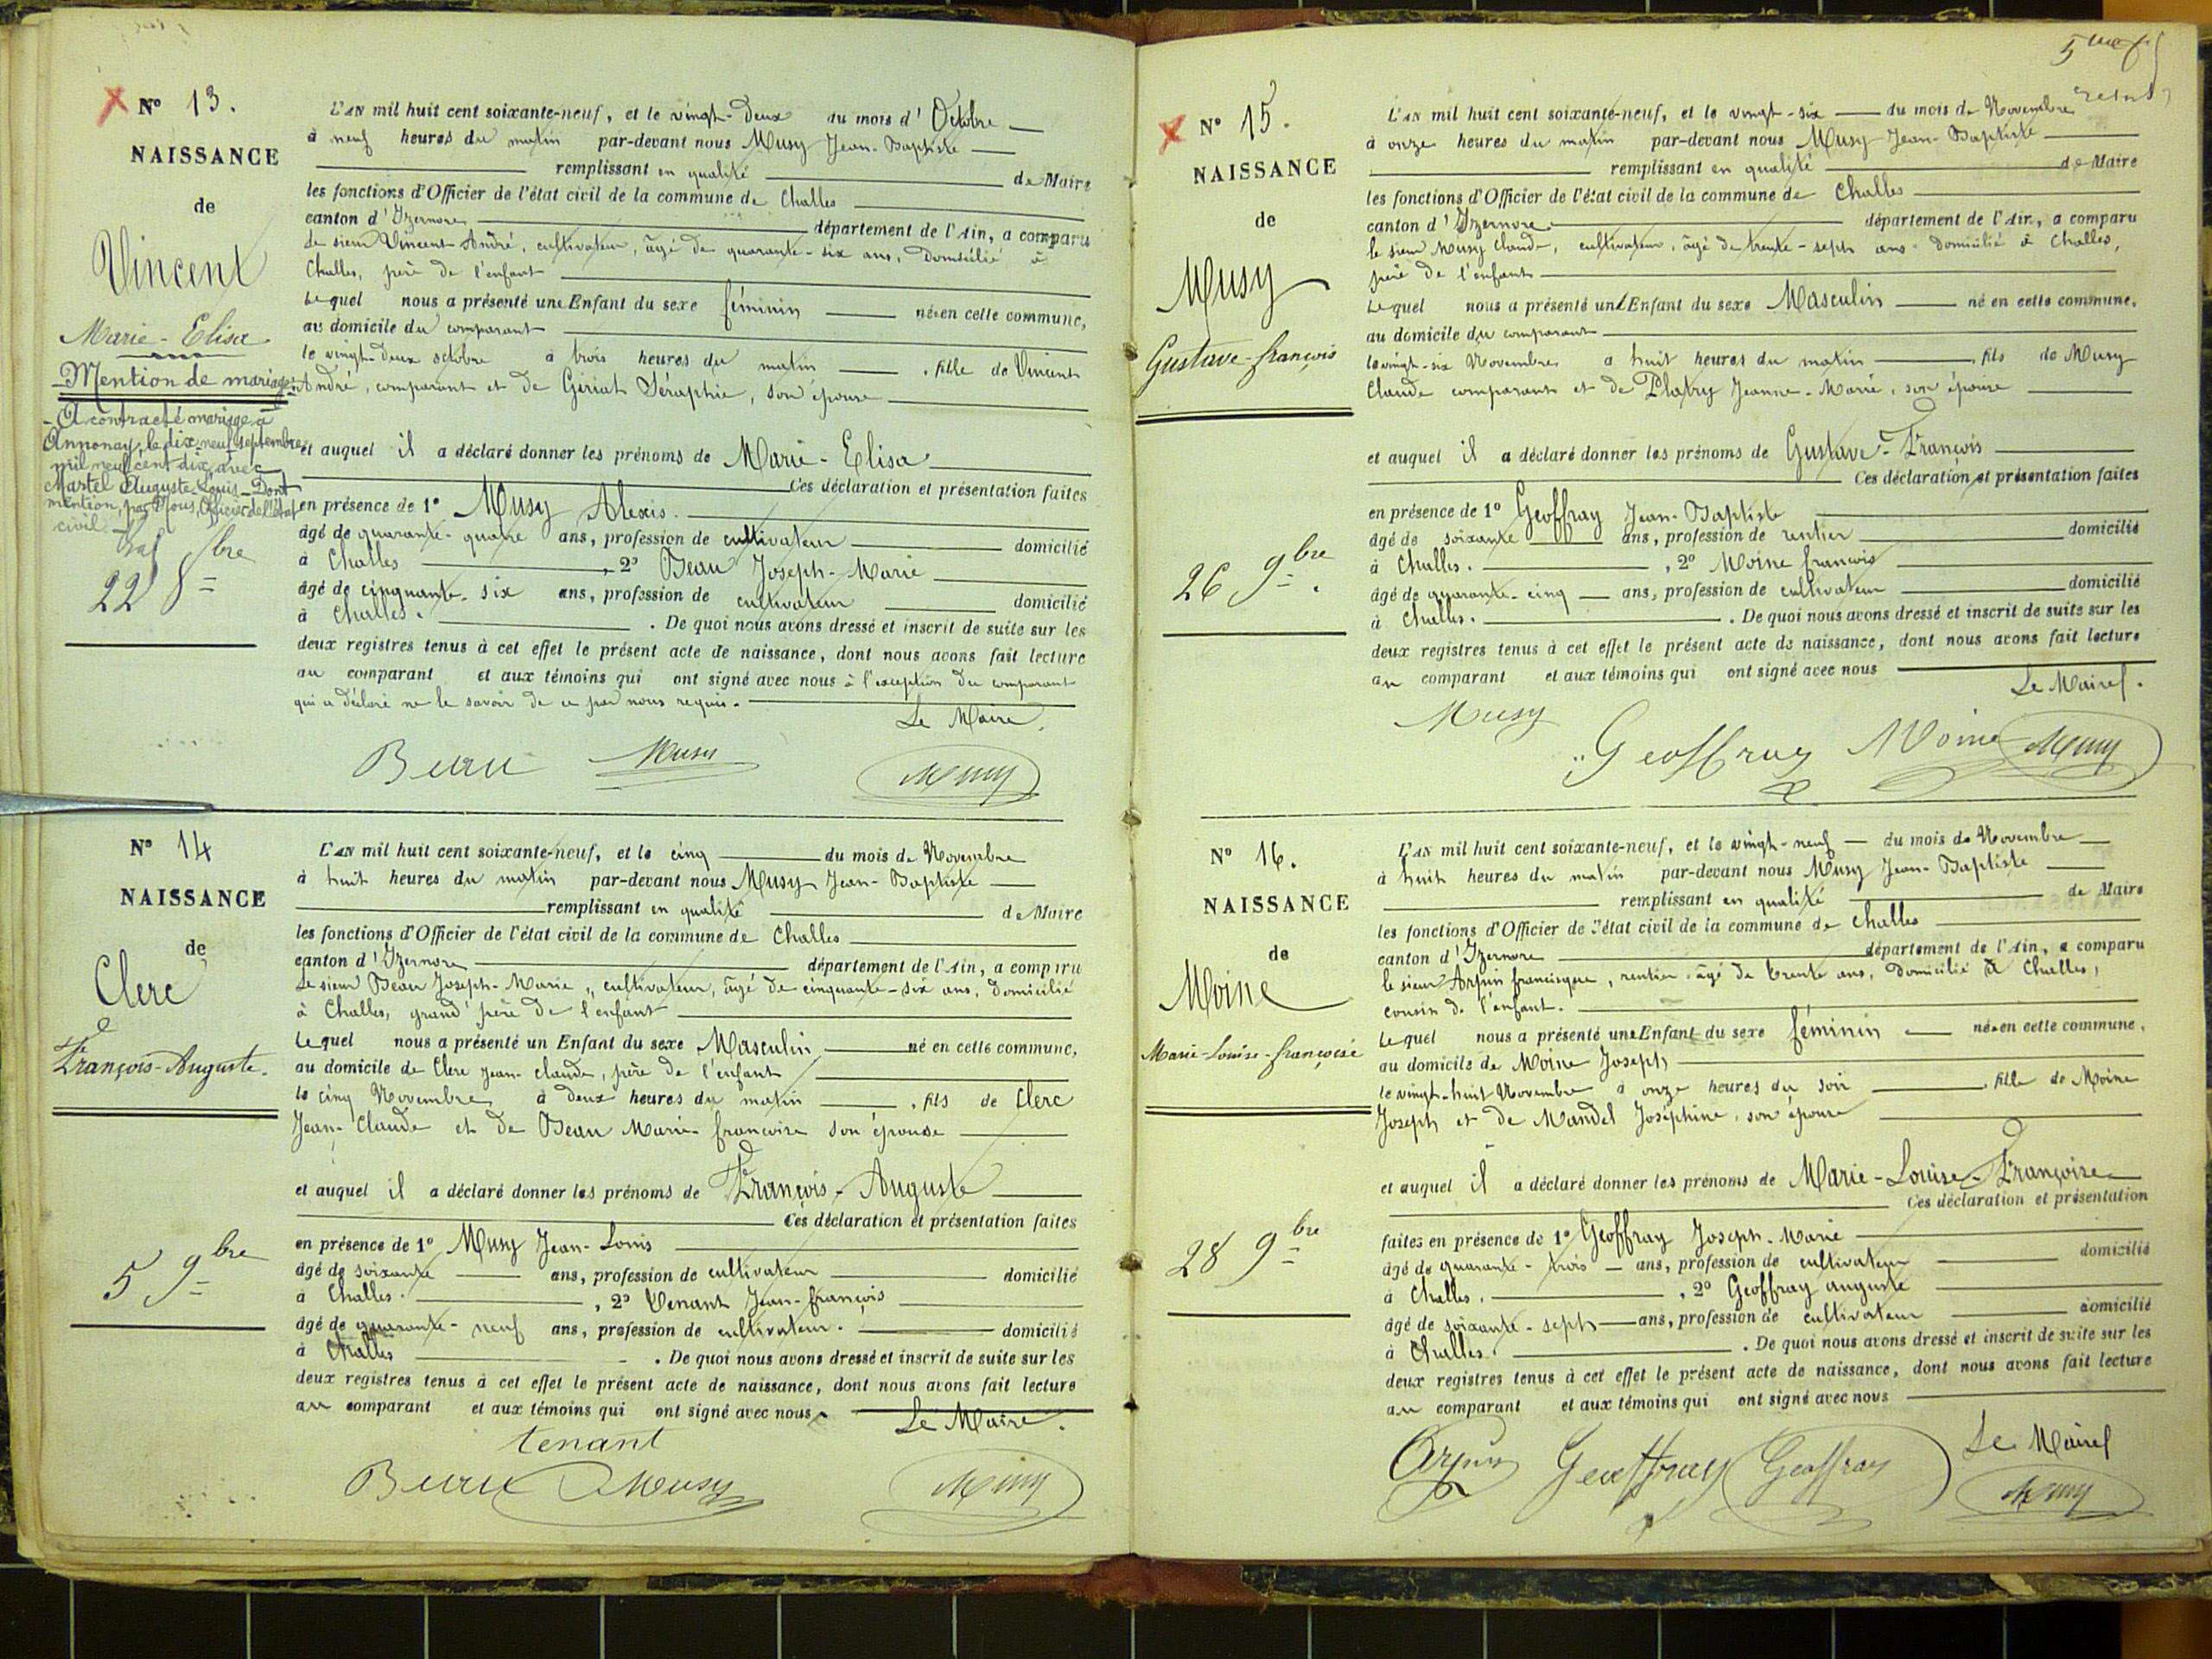 Nº 13.
NAISSANCE
de
Vincent
Marie-Elisa
Mention de mariage:
A contracté mariage à
Annonay, le dix-neuf septembre
mil neuf cent dix, avec
Martel Auguste-Louis_Dont
mention, par Nous, Officier de l'état
civil.
22 8bre
L'AN mil huit cent soixante-neuf, et le vingt-deux du mois d'Octobre
à neuf heures du matin par-devant nous Musy Jean-Baptiste
remplissant en qualité de Maire
les fonctions d'Officier de l'état civil de la commune de Challes
canton d'Izernore département de l'Ain, a comparu
le sieur Vincent André, cultivateur, âgé de quarante-six ans, domicilié à
Challes, père de l'enfant
Lequel nous a présenté une Enfant du sexe féminin née en cette commune,
au domicile du comparant
le vingt-deux octobre à trois heures du matin, fille de Vincent
André, comparant et de Gériat Séraphie, son épouse
et auquel il a déclaré donner les prénoms de Marie-Elisa
Ces déclaration et présentation faites
en présence de 1º Musy Alexis.
âgé de quarante-quatre ans, profession de cultivateur domicilié
à Challes, 2º Beau Joseph-Marie
âgé de cinquante-six ans, profession de cultivateur domicilié
à Challes. De quoi nous avons dressé et inscrit de suite sur les
deux registres tenus à cet effet le présent acte de naissance, dont nous avons fait lecture
au comparant et aux témoins qui ont signé avec nous à l'exception du comparant
qui a déclaré ne le savoir de ce par nous requis.
Le Maire.
Beau Musy Musy
Nº 14
NAISSANCE
de
Clerc
François-Auguste.
5 9bre
L'AN mil huit cent soixante-neuf, et le cinq du mois de Novembre
à huit heures du matin par-devant nous Musy Jean-Baptiste
remplissant en qualité de Maire
les fonctions d'Officier de l'état civil de la commune de Challes
canton d'Izernore département de l'Ain, a comparu
Le sieur Beau Joseph-Marie, cultivateur, âgé de cinquante-six ans, domicilié
à Challes, grand père de l'enfant
Lequel nous a présenté un Enfant du sexe Masculin né en cette commune,
au domicile de Clerc Jean-Claude, père de l'enfant
le cinq Novembre à deux heures du matin, fils de Clerc
Jean-Claude et de Beau Marie-françoise son épouse
et auquel il a déclaré donner les prénoms de François-Auguste
Ces déclaration et présentation faites
en présence de 1º Musy Jean-Louis
âgé de soixante ans, profession de cultivateur domicilié
à Challes., 2º Tenant Jean-françois
âgé de quarante-neuf ans, profession de cultivateur. domicilié
à Challes. De quoi nous avons dressé et inscrit de suite sur les
deux registres tenus à cet effet le présent acte de naissance, dont nous avons fait lecture
au comparant et aux témoins qui ont signé avec nous.
Le Maire.
tenant
Beau Musy Musy
Nº 15.
NAISSANCE
de
Musy
Gustave-françois
26 9bre.
L'AN mil huit cent soixante-neuf, et le vingt-six du mois de Novembre
à onze heures du matin par-devant nous Musy Jean-Baptiste
remplissant en qualité de Maire
les fonctions d'Officier de l'état civil de la commune de Challes
canton d'Izernore département de l'Ain, a comparu
le sieur Musy Claude, cultivateur, âgé de trente-sept ans domicilié à Challes,
père de l'enfant
Lequel nous a présenté un Enfant du sexe Masculin né en cette commune,
au domicile du comparant
le vingt-six Novembre à huit heures du matin, fils de Musy
Claude comparant et de Platry Jeanne-Marie, son épouse
et auquel il a déclaré donner les prénoms de Gustave-François
Ces déclaration et présentation faites
en présence de 1º Geoffray Jean-Baptiste
âgé de soixante ans, profession de rentier domicilié
à Challes., 2º Moine françois
âgé de quarante-cinq ans, profession de cultivateur domicilié
à Challes. De quoi nous avons dressé et inscrit de suite sur les
deux registres tenus à cet effet le présent acte de naissance, dont nous avons fait lecture
au comparant et aux témoins qui ont signé avec nous
Le Maire.
Musy Geoffray Moine Musy
Nº 16.
NAISSANCE
de
Moine
Marie-Louise-françoise
28 9bre
L'AN mil huit cent soixante-neuf, et le vingt-neuf du mois de Novembre
à huit heures du matin par-devant nous Musy Jean-Baptiste
remplissant en qualité de Maire
les fonctions d'Officier de l'état civil de la commune de Challes
canton d'Izernore département de l'Ain, a comparu
le sieur Arpin francisque, rentier, âgé de trente ans, domicilié à Challes,
cousin de l'enfant.
Lequel nous a présenté une Enfant du sexe féminin née en cette commune,
au domicile de Moine Joseph
le vingt-huit Novembre à onze heures du soir, fille de Moine
Joseph et de Mandel Joséphine, son épouse
et auquel il a déclaré donner les prénoms de Marie-Louise-Françoise
Ces déclaration et présentation
faites en présence de 1º Geoffray Joseph-Marie
âgé de quarante-trois ans, profession de cultivateur domicilié
à Challes., 2º Geoffray auguste
âgé de soixante-sept ans, profession de cultivateur domicilié
à Challes. De quoi nous avons dressé et inscrit de suite sur les
deux registres tenus à cet effet le présent acte de naissance, dont nous avons fait lecture
au comparant et aux témoins qui ont signé avec nous
Le Maire
Arpin Geoffray Geoffray Musy